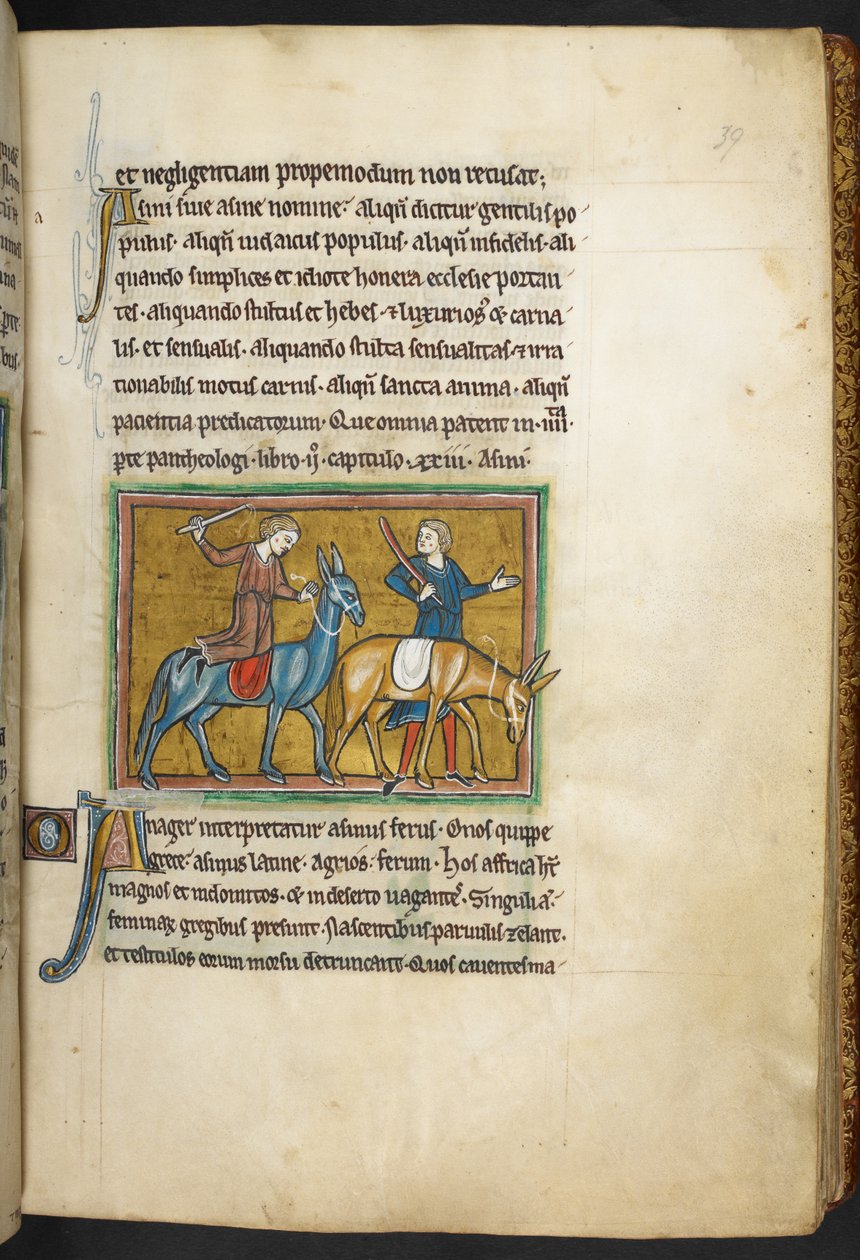 39
et negligentiam propemodum non recusat;
a
Asini siue asine nomine. aliqñ dicitur gentilis po
pulus. aliqñ iudaicus populus. aliqñ infidelis. ali
quando simplices et idiote honera ecclesie portan
tes. aliquando stultus et hebes. ⁊ luxurios᷒ & carna
lis. et sensualis. aliquando stulta sensualitas. ⁊ irra
tionabilis motus carnis. aliqñ sancta anima. aliqñ
pacientia predicatorum. Que omnia patent in .iiii.ta
ꝑte pantheologi. libro .ijº. capitulo .xxiii. Asini.
O
Onager interpretatur asinus ferus. Onos quippe
grece. asinus latine. Agrios. ferum. Hos affrica hꝫt
magnos et indomitos. & in deserto uagantes. Singuli aꝫ.
feminaꝝ gregibus presunt. Nascentibus paruulis zelant.
et testiculos eorum morsu detruncant. Quos cauentes ma